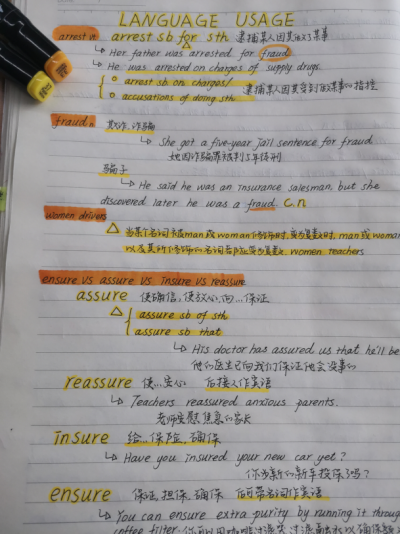 LANGUAGE USAGE
arrest vt arrest sb for sth 逮捕某人因其做了某事
↳ Her father was arrested for fraud.
↳ He was arrested on charges of supply drugs.
arrest sb on charges/
accusations of doing sth 逮捕某人因其受到做某事的指控
fraud n 欺诈,诈骗
↳ She got a five-year jail sentence for fraud
她因诈骗罪被判5年徒刑
骗子
↳ He said he was an insurance salesman, but she
discovered later he was a fraud. C.n
women drivers
△ 当某个名词被man或woman修饰时,变为复数时,man或woman
以及其所修饰的名词都应变为复数. women teachers
ensure vs assure vs insure vs reassure
assure 使确信,使放心,向...保证
△ assure sb of sth
assure sb that
↳ His doctor has assured us that he'll be
他的医生已向我们保证他会没事的
reassure 使...安心 后接人作宾语
↳ Teachers reassured anxious parents.
老师安慰焦急的家长
insure 给...保险,确保
↳ Have you insured your new car yet?
你为新的新车投保了吗?
ensure 保证,担保,确保 后可带名词作宾语
↳ You can ensure extra purity by running it through
coffee filter.